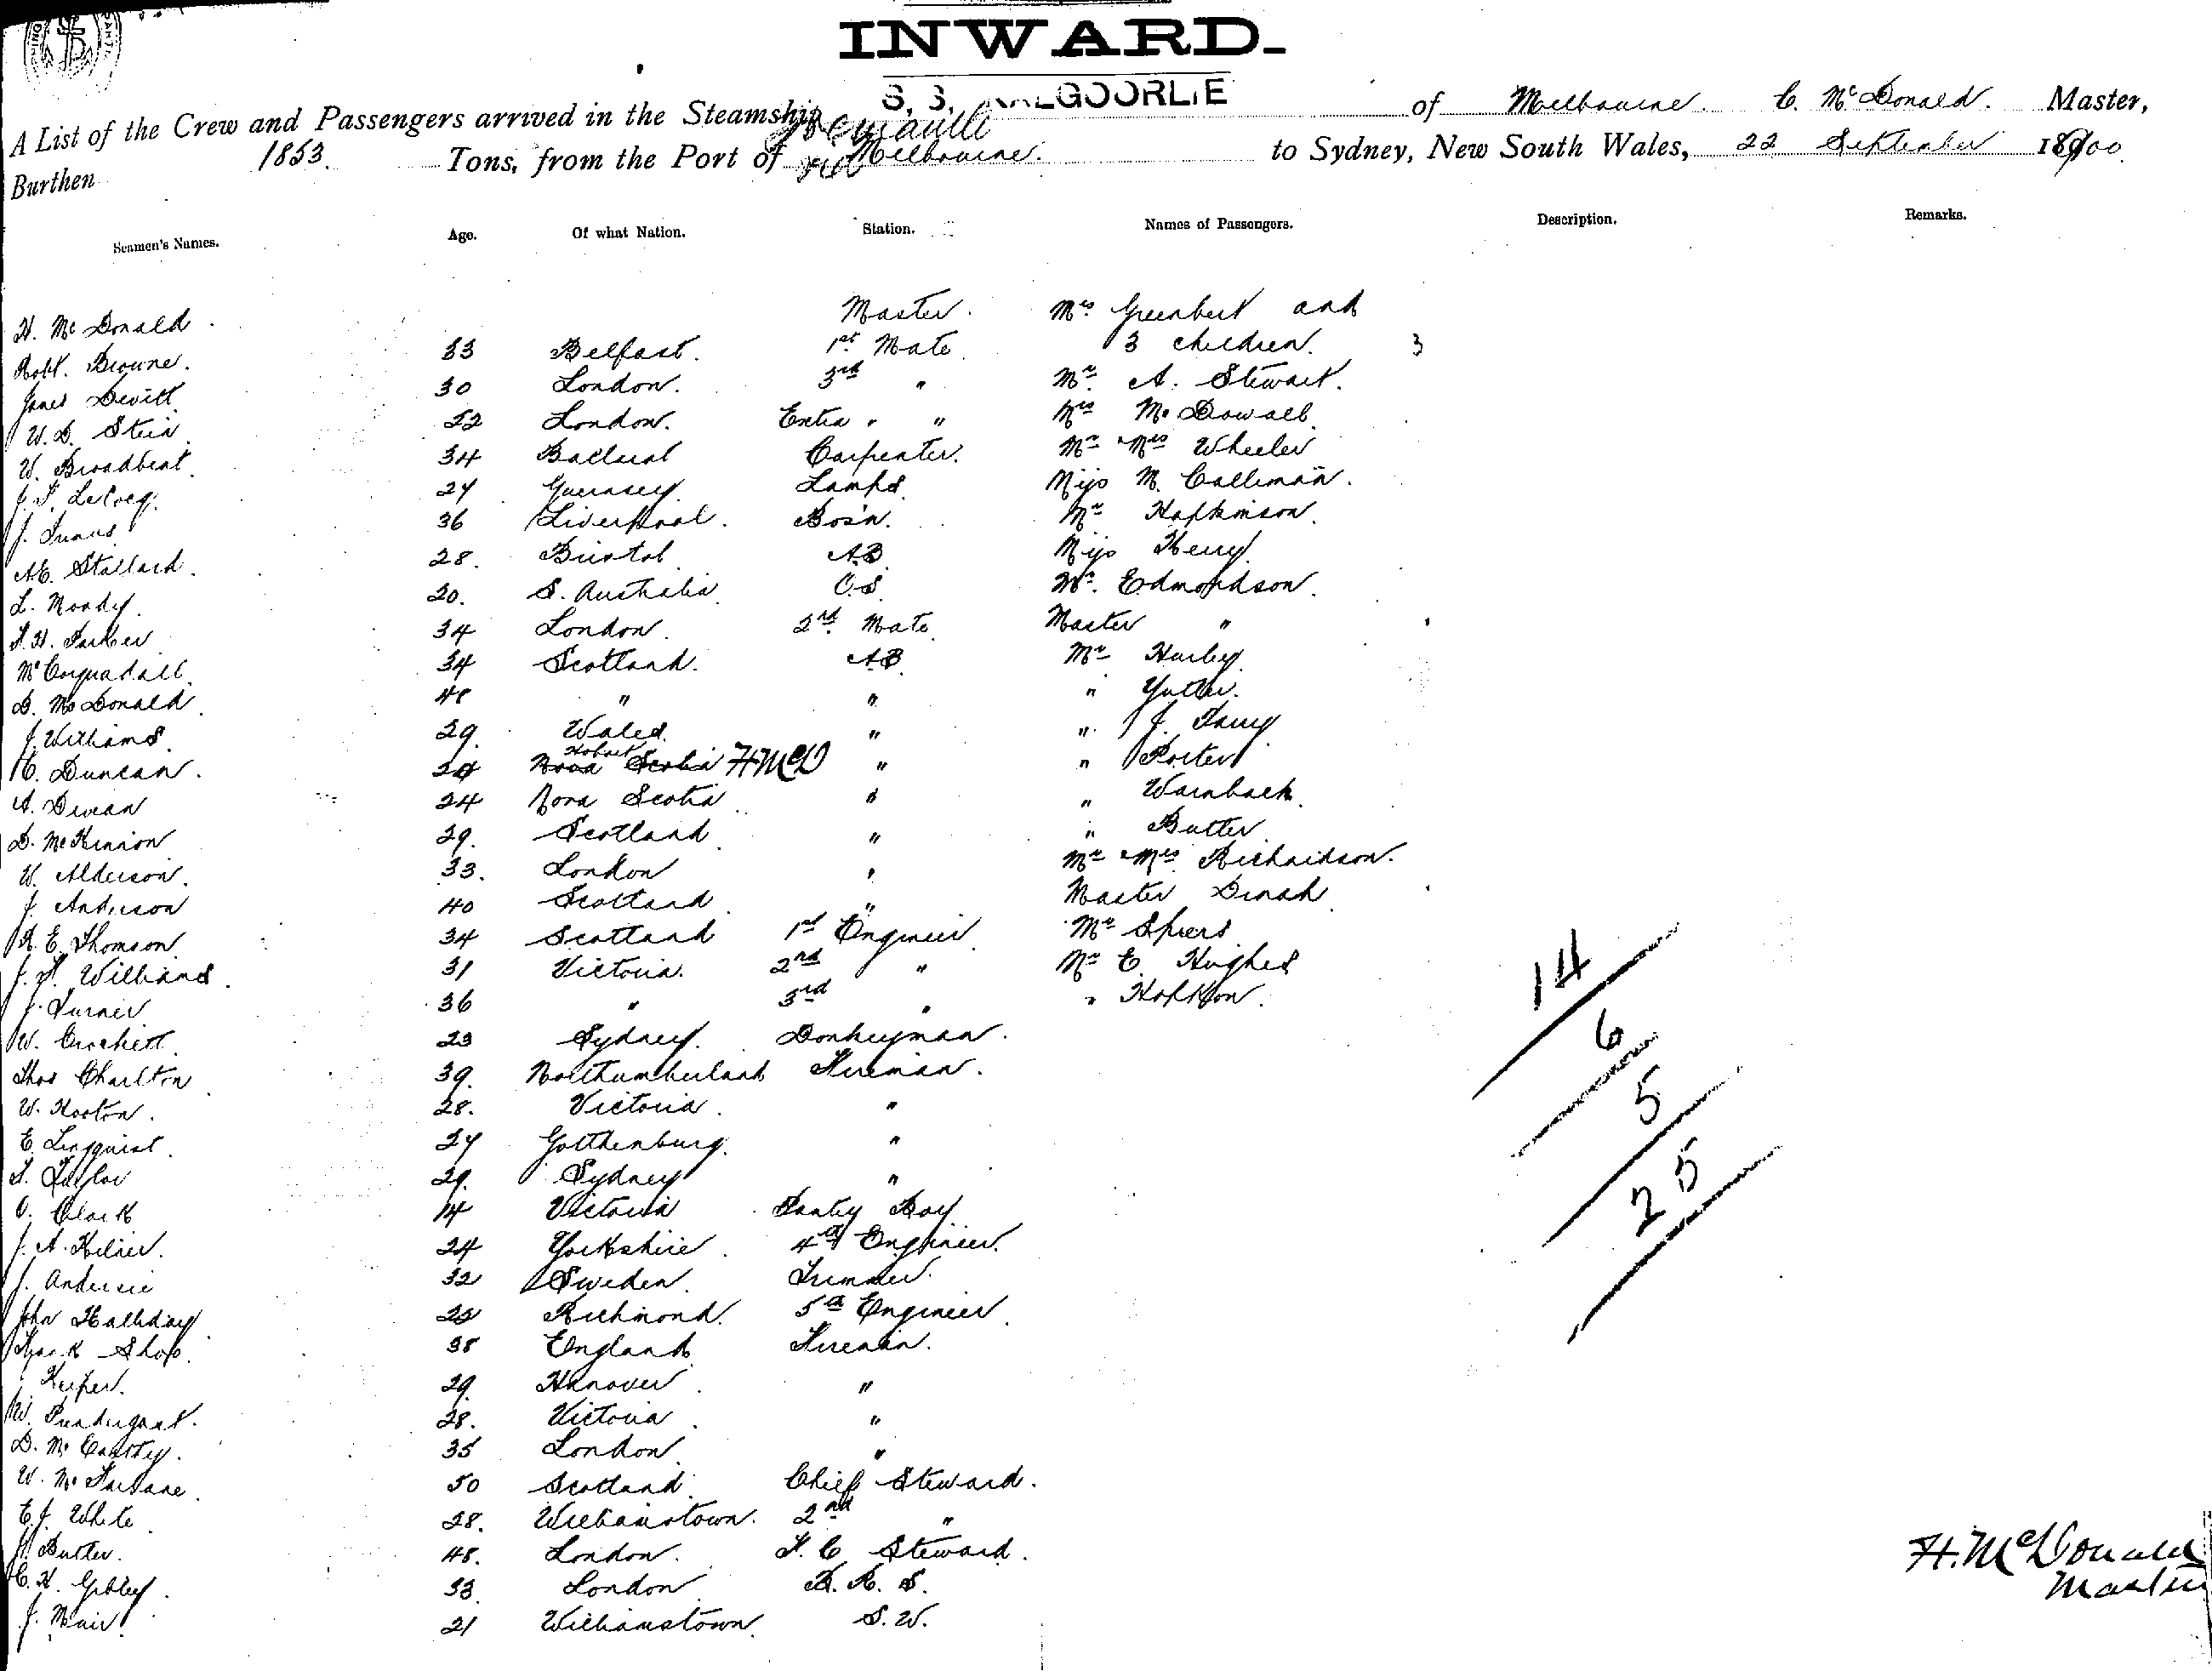 INWARD.
S. S. KALGOORLIE
A List of the Crew and Passengers arrived in the Steamship of Melbourne. C. McDonald. Master,
Fremantle
Burthen 1853. Tons, from the Port of via Melbourne. to Sydney, New South Wales, 22 September 1900
Seamen's Names. Age. Of what Nation. Station. Names of Passengers. Description. Remarks.
H. McDonald. Master. Mrs Greenbert and
Robt. Browne. 33 Belfast. 1st Mate 3 children. 3
James Devitt 30 London. 3rd " Mr A. Stewart.
W. D. Stein 22 London. Extra " " Mrs McDowall
W. Broadbent 34 Ballarat Carpenter. Mr & Mrs Wheeler
J. F. LeCocq. 27 Guernsey. Lamps. Miss M. Calliman.
J. 36 Liverpool. Bos'n. Mr Hopkinson.
A. E. Stallard. 28. Bristol A.B. Miss
L. Moody. 20. S. Australia O.S. Mr. Edmondson.
F. H. Parker 34 London. 2nd Mate Master "
McCorquodall. 34 Scotland. A.B. Mr Hurley
D. McDonald. 48 " " "
J. Williams. 29. Wales. " " J.
C. Duncan. 24 Hobart Nova Scotia HMcD " " Porter
A. 24 Nova Scotia " " Warnback.
D. McKinnon 29. Scotland " " Butter
W. Alderson. 33. London " Mr & Mrs Richardson.
J. Anderson 40 Scotland " Master
R. E. Thomson 34 Scotland 1st Engineer Mr Spiers
J. H. Williams. 31 Victoria. 2nd " Mr E. Hughes
J. Turner 36 " 3rd " "
W. Crockett 23 Sydney. Donkeyman.
Thos Charlton 39. Northumberland Fireman.
W. Hooton. 28. Victoria. "
E. Lingquist. 27 Gotthenburg. "
Taylor 29. Sydney "
O. Clark 14 Victoria Pantry Boy
J. A. 24 Yorkshire. 4th Engineer.
J. 32 Sweden. Trimmer.
John Halliday 25 Richmond. 5th Engineer
38 England Fireman.
Keiper. 29. Hanover "
W. Pendergast. 28. Victoria "
D. McCarthy. 35 London "
W. McFarlane. 50 Scotland. Chief Steward.
E. J. White 28. Williamstown. 2nd "
Butler. 48. London. F. C Steward.
C. H. 33 London
J. Mair. 21 Williamstown. S. W.
14
6
5
25
H. McDonald
Master